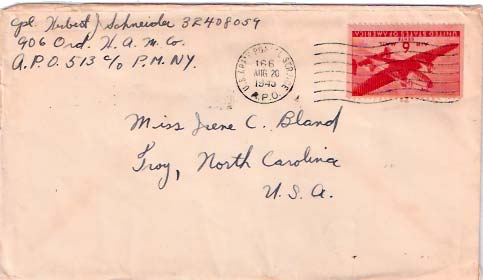 Cpl. Herbert J. Schneider 32408059
906 Ord. H. A. M. Co.
A.P.O. 513 c/o P.M. N.Y.
U.S. ARMY POSTAL SERVICE
166
AUG 20
1945
A.P.O.
UNITED STATES OF AMERICA
6
AIR MAIL
Miss Irene C. Bland
Troy, North Carolina
U.S.A.